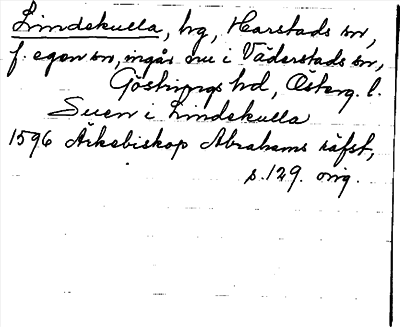 Lindekulla, hg, Harstads sn,
f. egen sn, ingår nu i Väderstads sn,
Göstrings hd, Österg. l.
Suen i Lindekulla
1596 Ärkebiskop Abrahams räfst,
s. 129. orig.